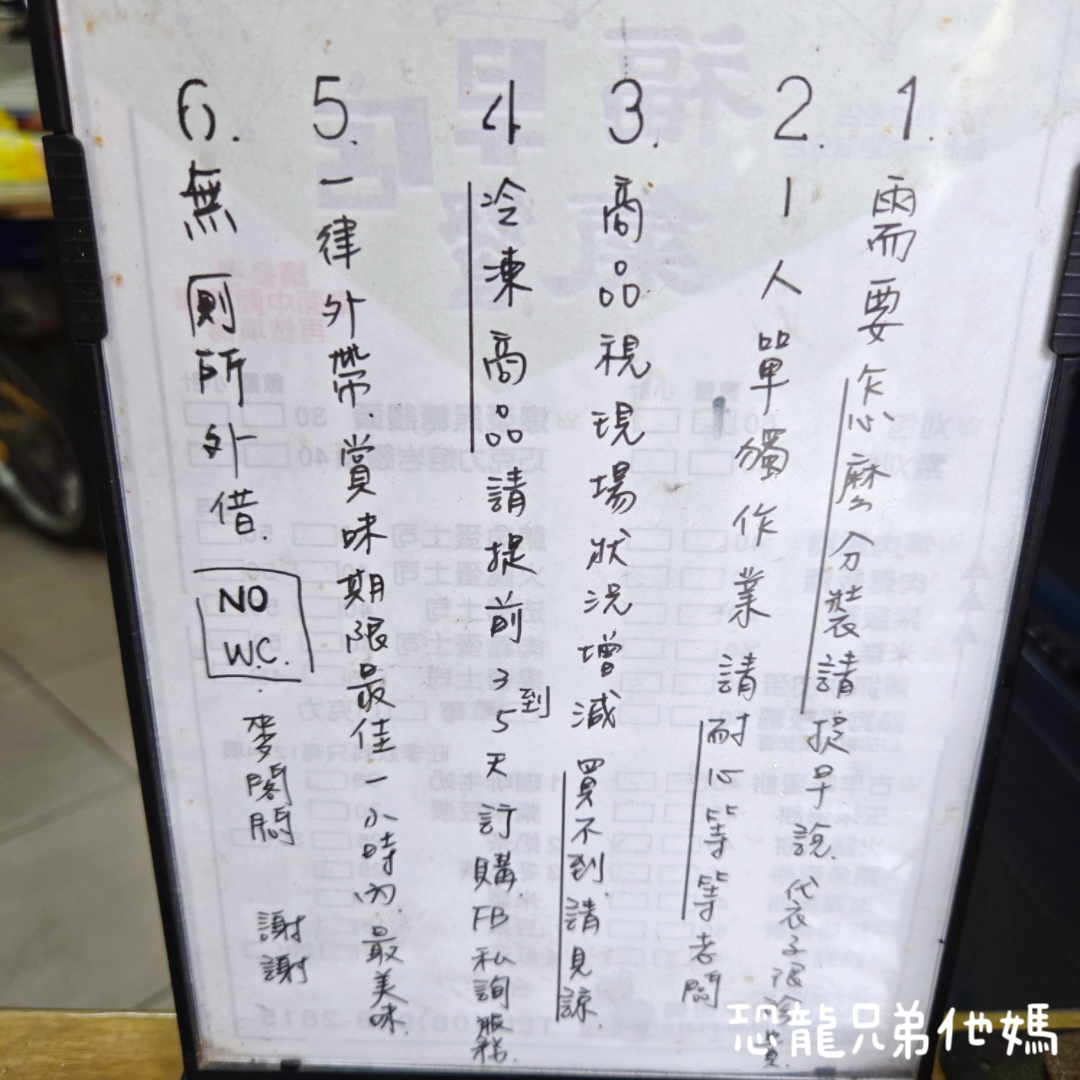 1. 需要怎麼分裝請提早說.代表子很浪費
2. 1人單獨作業請耐心等等老闆
3. 商品視現場狀況增減 買不到.請見諒.
4 冷凍商品請提前3到5天訂購FB私詢服務.
5. 一律外帶 賞味期限最佳一小時內.最美味.
6. 無廁所外借.
NO
W.C.
麥閣問
謝謝
恐龍兄弟他媽